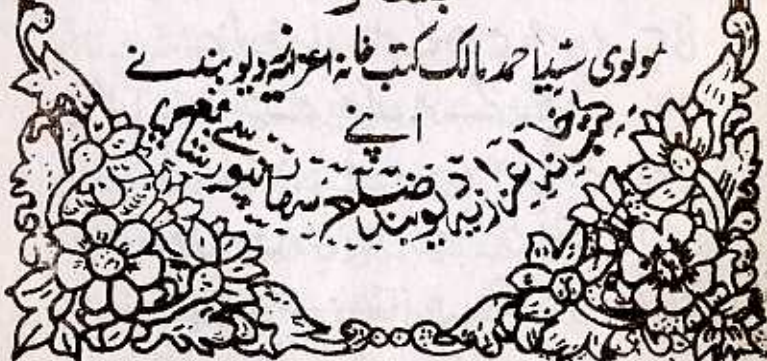 مولوی سید احمد مالک کتب خانہ اعزازیہ دیوبند نے
اپنے
کتب خانہ اعزازیہ دیوبند ضلع سہارنپور سے شائع کیا